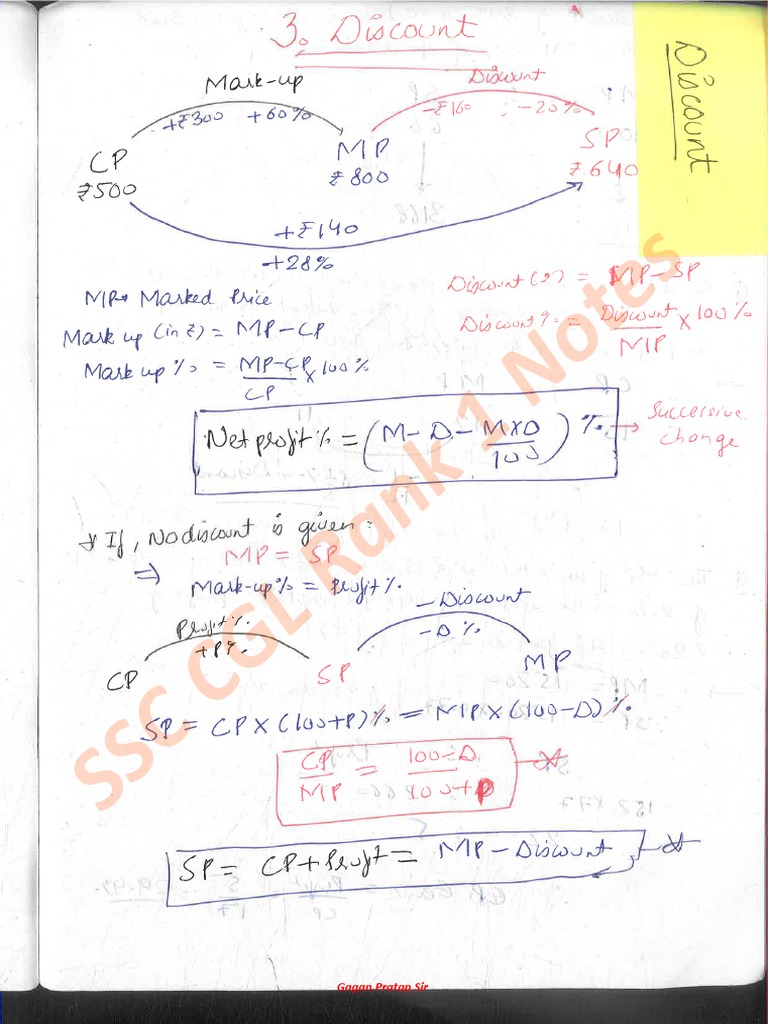 3. Discount
Discount
Mark-up
Discount
+₹300 +60%
-₹160 ; -20%
CP
₹500
MP
₹800
SP
₹640
+₹140
+28%
MP → Marked Price
Mark up (in ₹) = MP-CP
Mark up % = MP-CP/CP × 100%
Discount (₹) = MP-SP
Discount % = Discount/MP × 100%
Net profit % = (M-D-M×D/100)%. → Successive change
* If, No discount is given :
MP = SP
⇒ Mark-up% = Profit%.
Profit%
+P%.
- Discount
-D%
CP
SP
MP
SP = CP × (100+P)% = MP × (100-D)%.
CP/MP = 100-D/100+P
SP = CP + Profit = MP - Discount
SSC CGL Rank 1 Notes
Gagan Pratap Sir